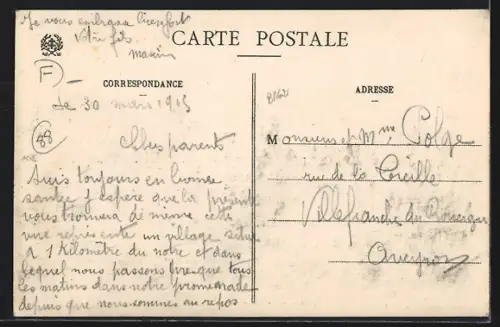 Je vous embrasse bien fort
Votre fils
Maxim
CARTE POSTALE
F
CORRESPONDANCE
Le 30 mars 1915
88
Chers parents
Suis toujours en bonne
santé j'espère que la présente
vous trouvera de meme cette
vue représente un village situé
a 1 Kilomètre du notre et dans
lequel nous passons presque tous
les matins dans notre promenade
depuis que nous sommes au repos
ADRESSE
Monsieur et Mme Colge
rue de la
Villefranche du Rouergue
Aveyron